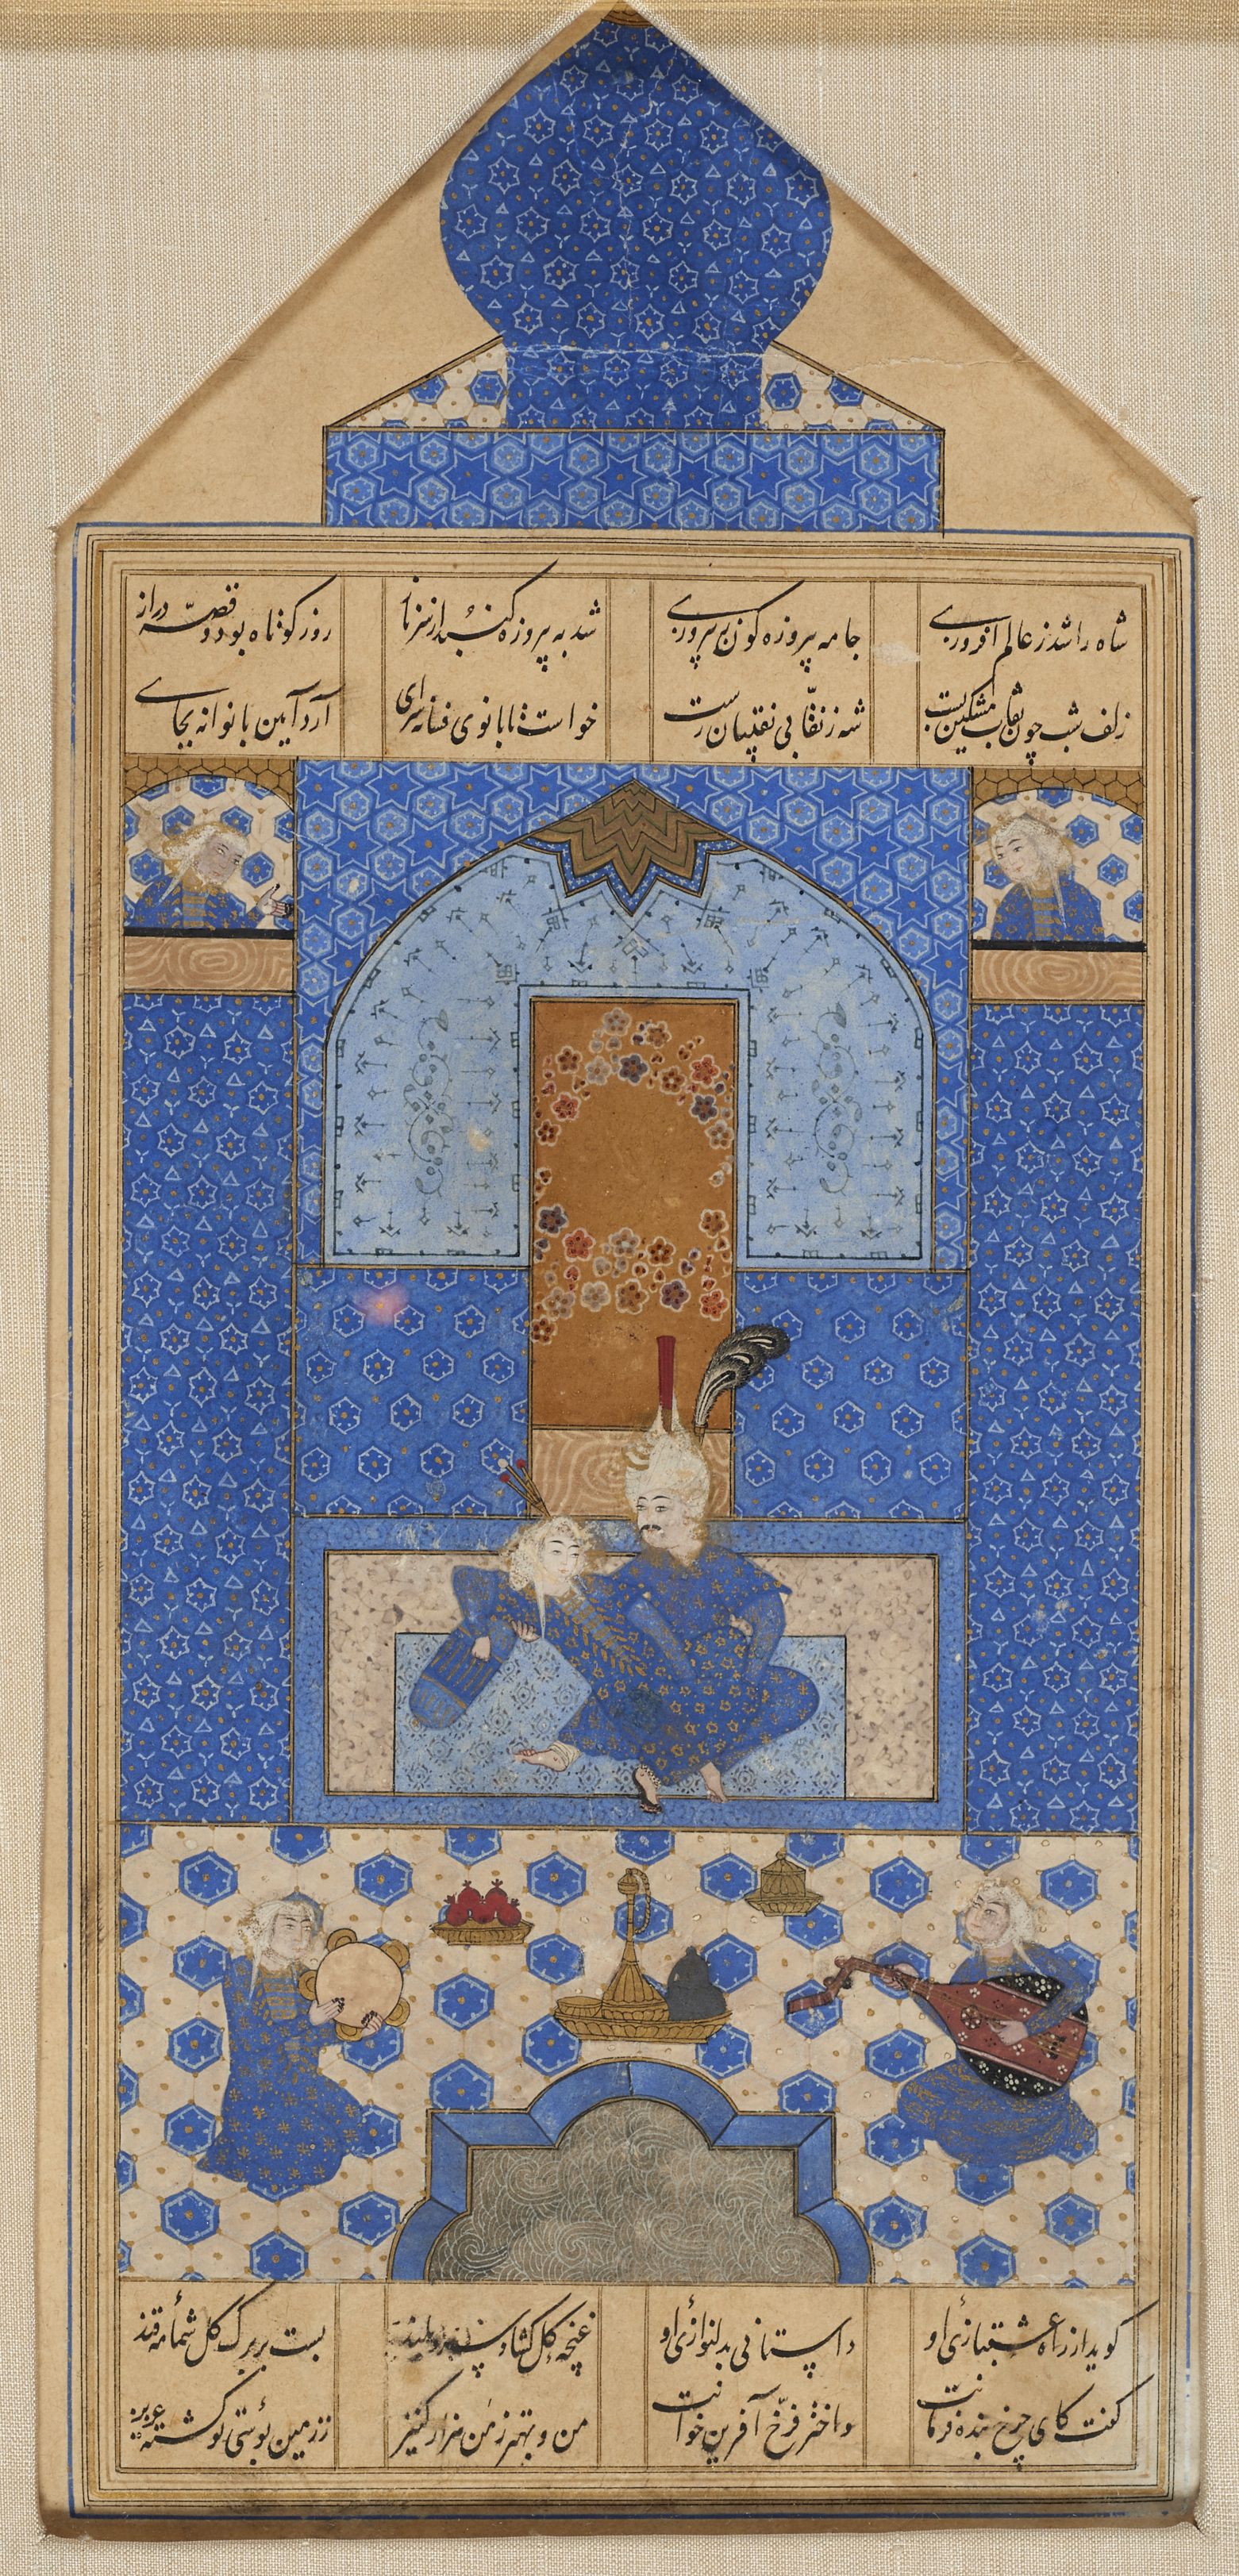 شاه را شد ز عالم افروزی جامه پیروزه کون ز پیروزی شد به پیروزه کنبد از سر ناز روز کوتاه بود و قصّه دراز
زلف شب چون نقاب مشکین بست شه ز نقّابی نقیبان رست خواست تا بانوی فسانه سرای آرد آیین بانوانه بجای
کوید از راه عشقبازی او داستانی بدلنوازی او غنچه کل کشاد سرو بلند بست بر برک کل شمامه قند
کفت کای چرخ بنده فرمانت واختر فرّخ آفرین خوانت من و بهتر ز من هزار کنیز ز زمین بوسی تو کشته عزیز